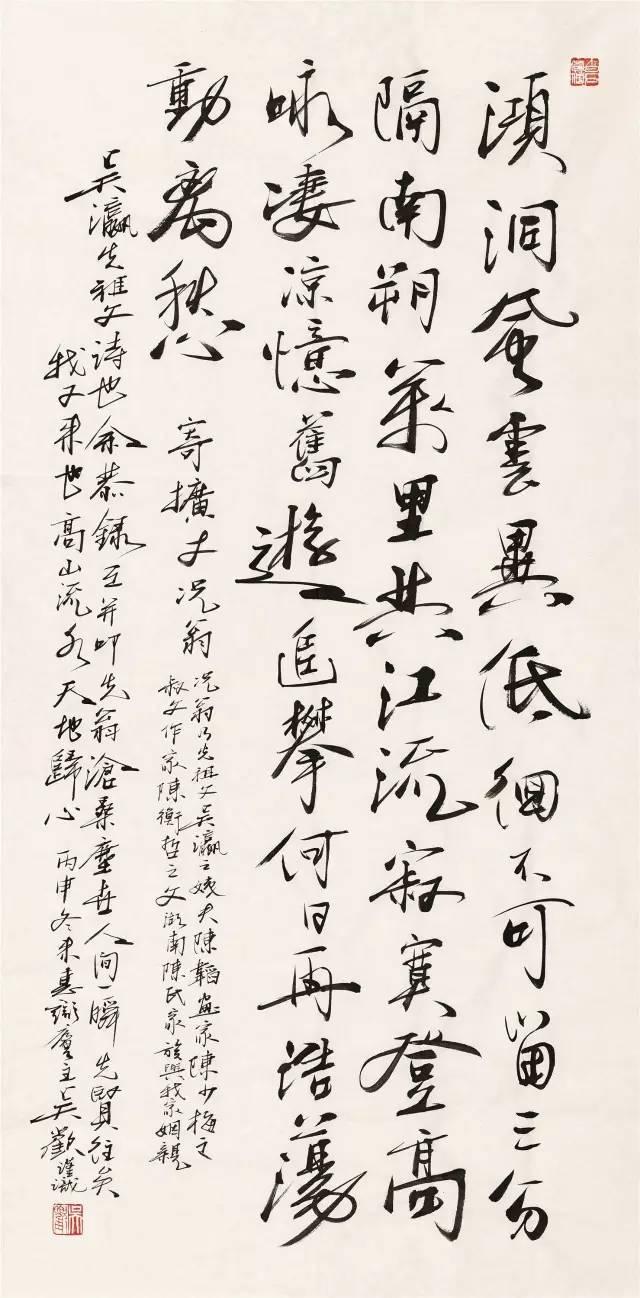 澒洞風雲異低徊不可留三分
隔南朔萬里共江流寂寞登高
咏淒涼憶舊遊追攀何日再浩蕩
動離愁 寄擴丈况翁
况翁乃先祖父吳瀛之姨夫陳韜畫家陳少梅之
叔父作家陳衡哲之父湖南陳氏家族與我家姻親
吳瀛先祖父詩也余恭錄之并叩先翁滄桑塵世人間一瞬先賢往矣
我又來也高山流水天地歸心 丙申冬 廬主吳歡謹識